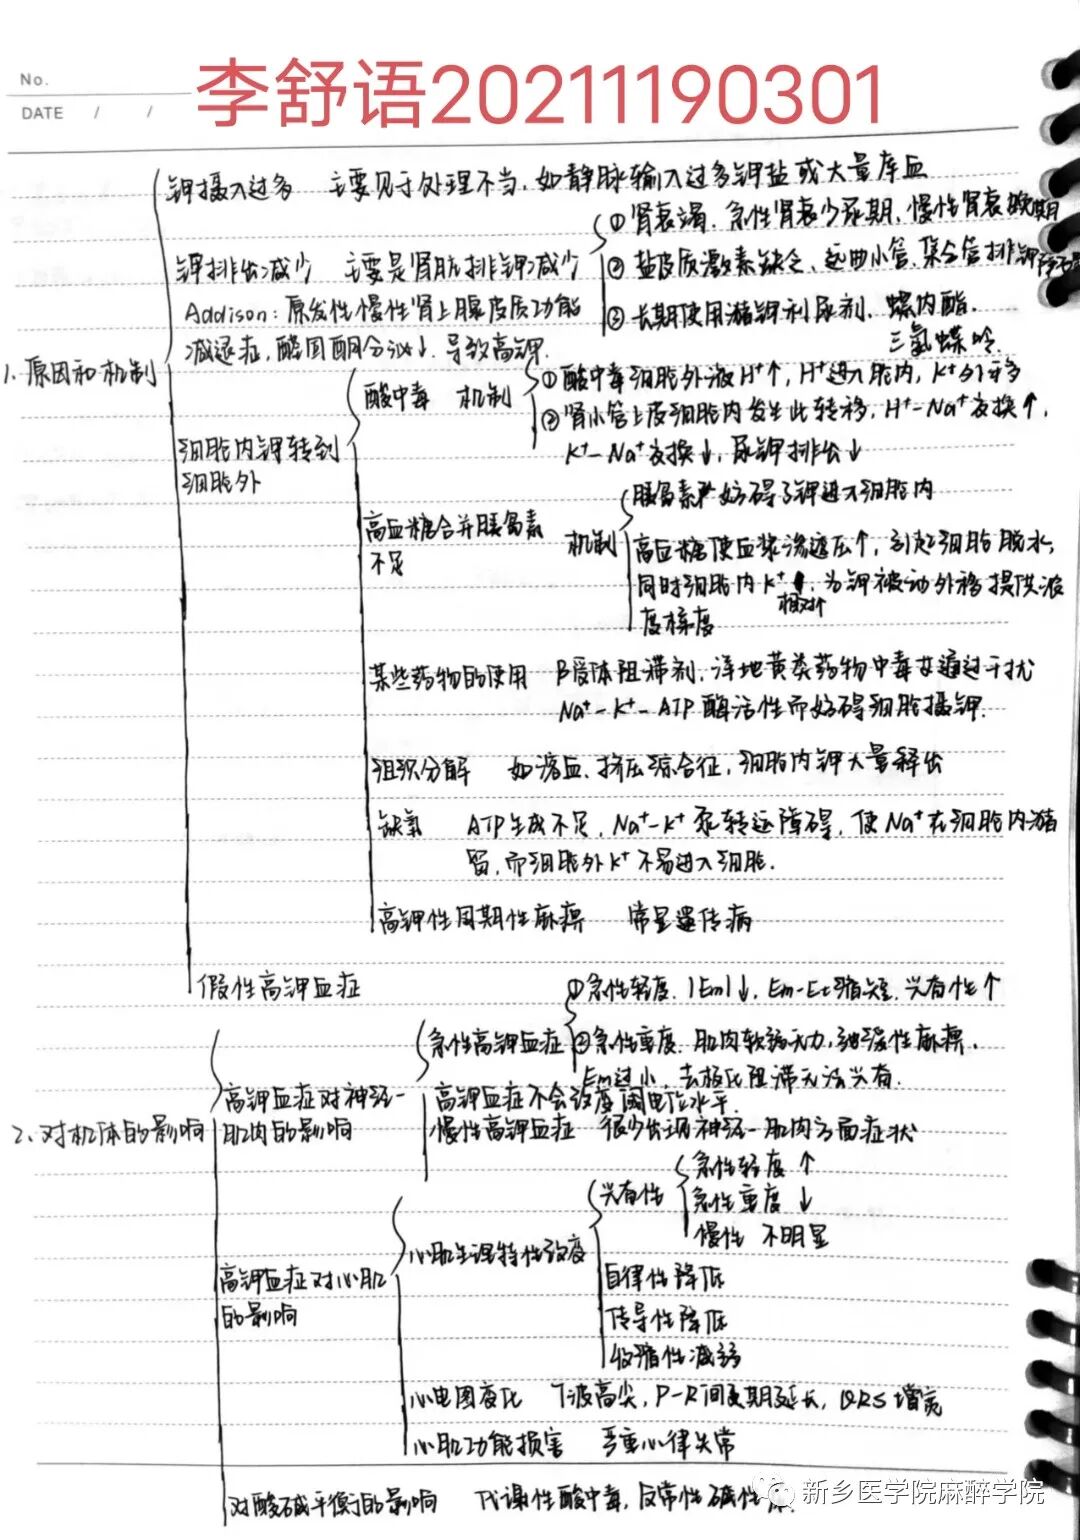 No.
DATE / /
李舒语20211190301
钾摄入过多 主要见于处理不当,如静脉输入过多钾盐或大量库血
钾排出减少 主要是肾脏排钾减少
①肾衰竭、急性肾衰少尿期、慢性肾衰晚期
②盐皮质激素缺乏、远曲小管、集合管排钾
③长期使用潴钾利尿剂、螺内酯.
三氨蝶呤
Addison:原发性慢性肾上腺皮质功能
减退症,醛固酮分泌↓.导致高钾.
1、原因和机制
细胞内钾转到
细胞外
酸中毒 机制
①酸中毒细胞外液H⁺↑,H⁺进入胞内,K⁺外移
②肾小管上皮细胞内发生此转移,H⁺-Na⁺交换↑,
K⁺-Na⁺交换↓,尿钾排出↓
高血糖合并胰岛素
不足
机制
胰岛素 妨碍了钾进入细胞内
高血糖使血浆渗透压↑,引起细胞脱水,
同时细胞内K⁺相对↑,为钾被动外移提供浓
度梯度
某些药物的使用 β受体阻滞剂、洋地黄类药物中毒女通过干扰
Na⁺-K⁺-ATP酶活性而妨碍细胞摄钾.
组织分解 如溶血、挤压综合征,细胞内钾大量释出
缺氧 ATP生成不足,Na⁺-K⁺泵转运障碍,使Na⁺在细胞内潴
留,而细胞外K⁺不易进入细胞.
高钾性周期性麻痹 常显遗传病
假性高钾血症
2、对机体的影响
高钾血症对神经-
肌肉的影响
急性高钾血症
①急性轻度.|Em|↓,Em-Et缩短.兴奋性↑
②急性重度.肌肉软弱无力,弛缓性麻痹.
Em过小,去极化阻滞无法兴奋.
高钾血症不会改变阈电位水平
慢性高钾血症 很少出现神经-肌肉方面症状
高钾血症对心肌
的影响
心肌生理特性改变
兴奋性
急性轻度↑
急性重度↓
慢性 不明显
自律性降低
传导性降低
收缩性减弱
心电图变化 T波高尖,P-R间期延长,QRS增宽
心肌功能损害 严重心律失常
对酸碱平衡的影响 代谢性酸中毒,反常性碱性尿.
新乡医学院麻醉学院